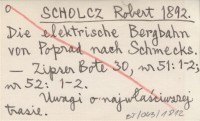 SCHOLCZ Robert 1892.
Die elektrische Bergbahn
von Poprad nach Schmecks.
— Zipser Bote 30, nr 51: 1-2;
nr 52: 1-2.
Uwagi o najwłaściwszej
trasie.